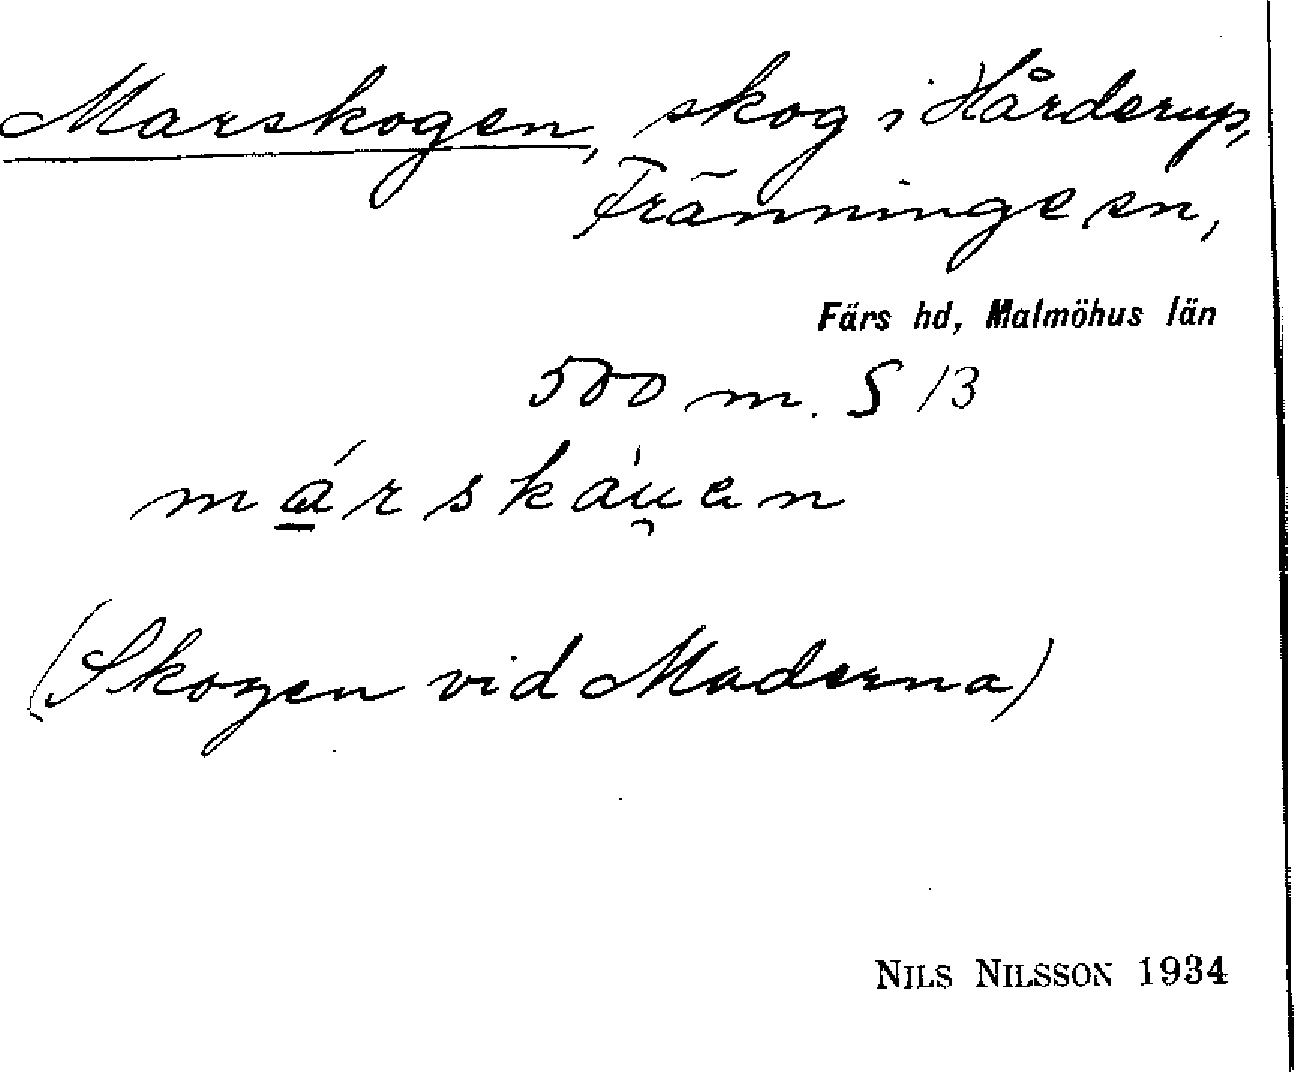 Marskogen, skog i Hårderup,
Tränninge sn,
Färs hd, Malmöhus län
500 m. S 13
márskáu̯en
(Skogen vid Maderna)
NILS NILSSON 1934